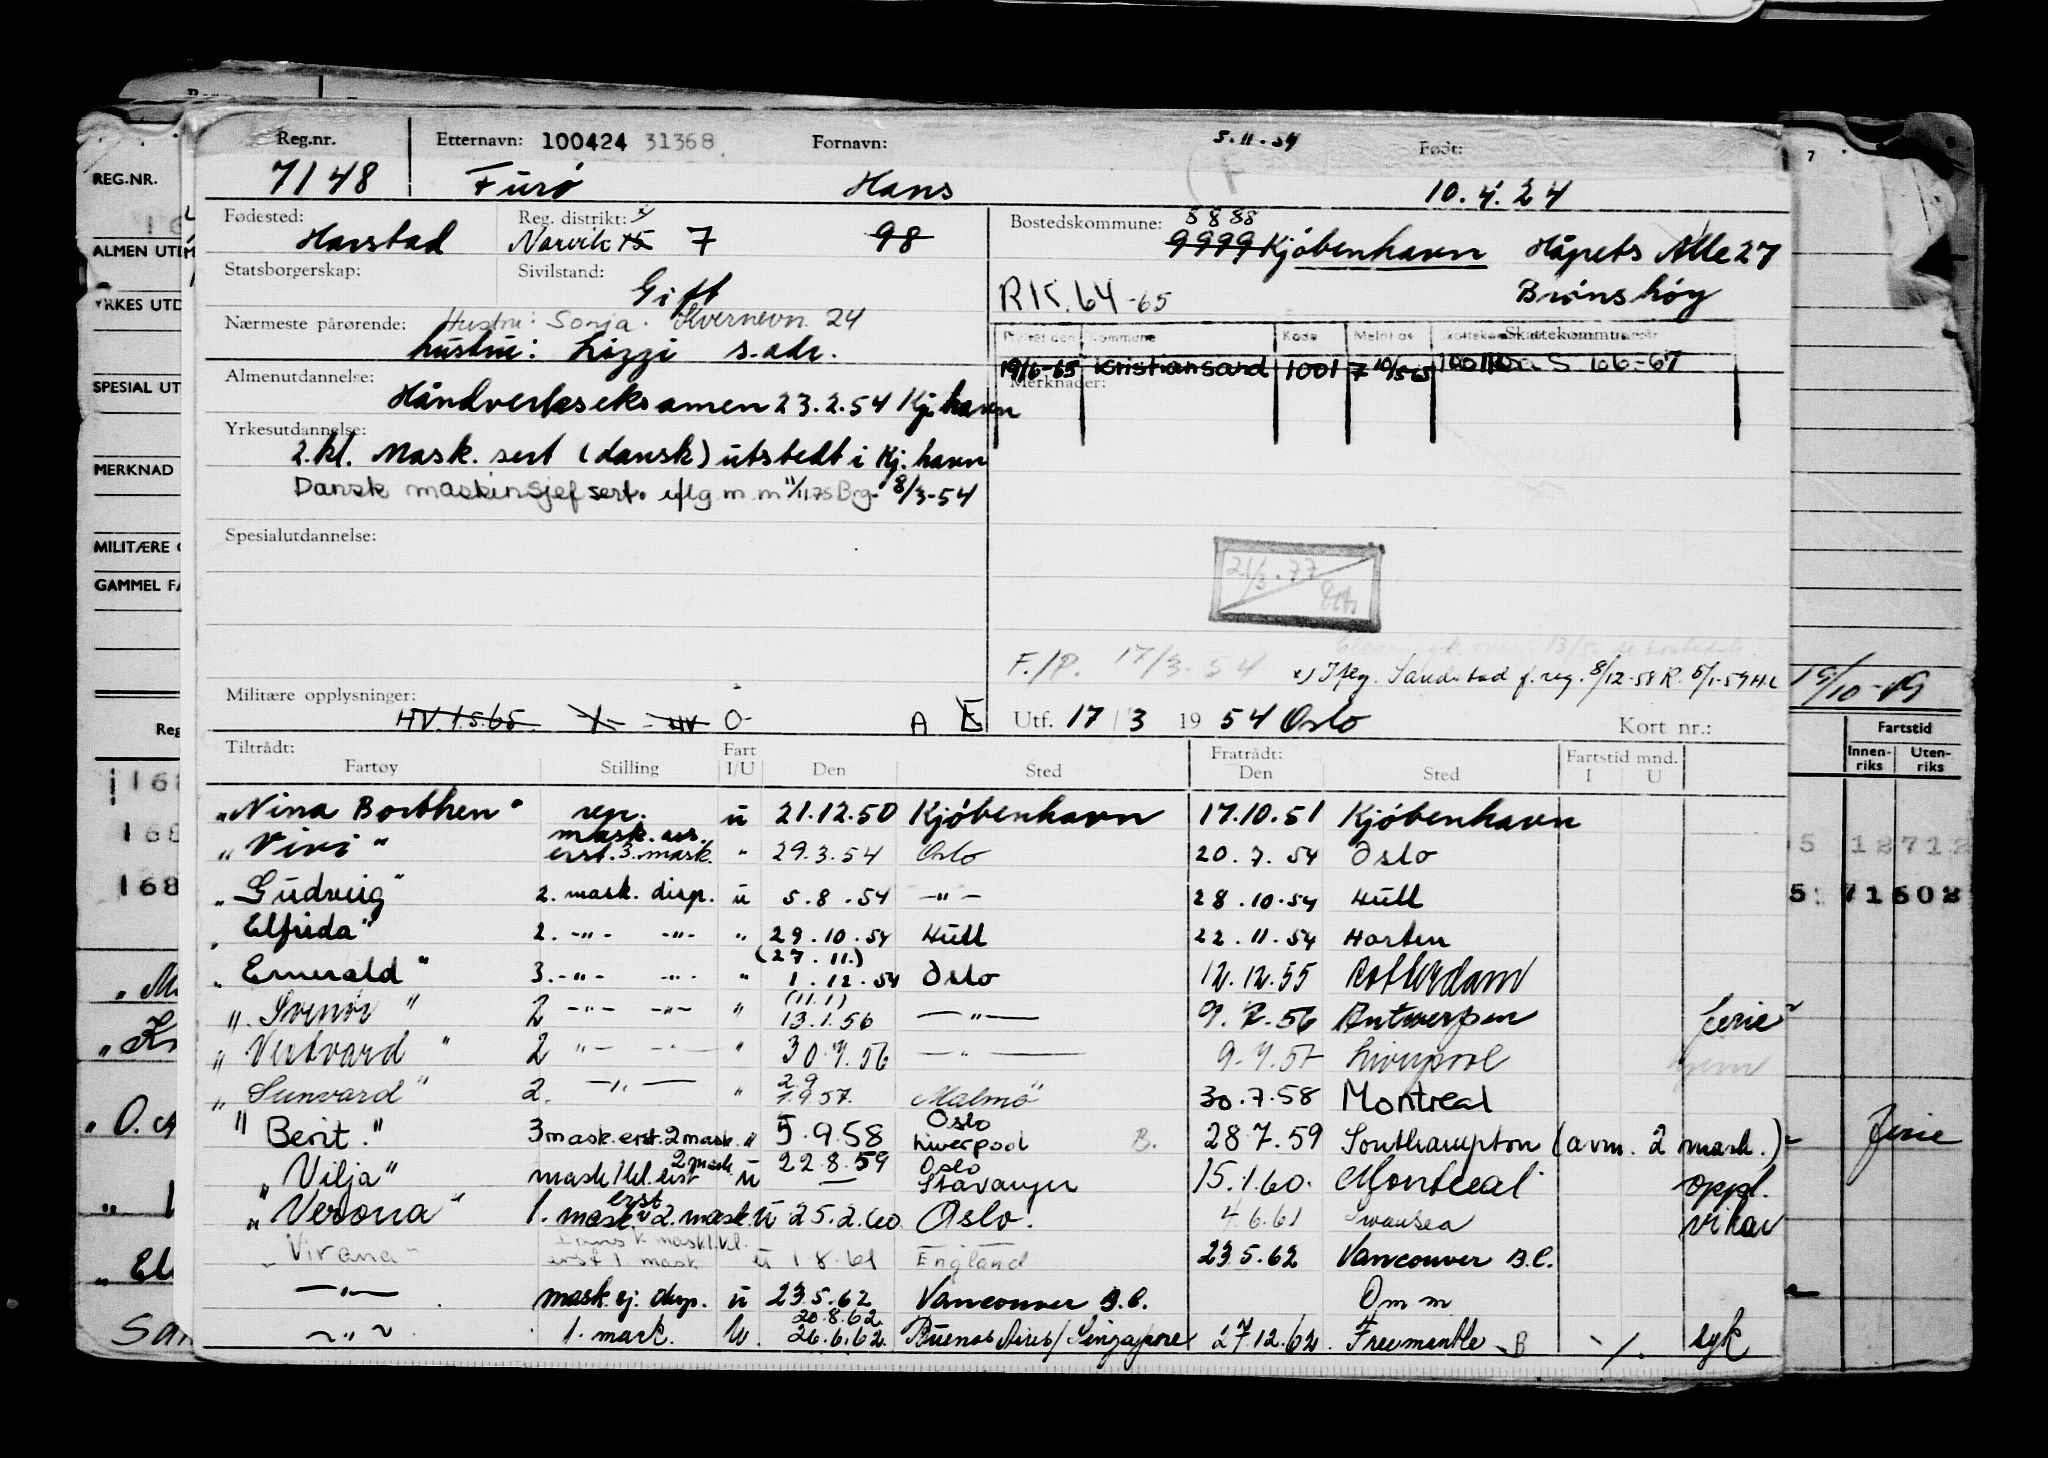 Reg.nr. Etternavn: 100424 31368 Fornavn: 5.11.54 Født:
7148 Furø Hans 10.4.24
Fødested: Reg. distrikt: Bostedskommune: 8888
Harstad Narvik 15 7 98 9999 Kjøbenhavn Håpets Alle 27
Statsborgerskap: Sivilstand: Brønshøy
Gift RK.64-65
Nærmeste pårørende: Hustru: Sonja. Kvernevn. 24
hustru: Lizzi s.adr. Skattekommune
19/6-65 Kristiansand 1001 7 S 66-67
Merknader:
Almenutdannelse:
Håndverkseksamen 23.2.54 Kj.havn
Yrkesutdannelse:
2.kl. Mask. sert (dansk) utstedt i Kj.havn
Dansk maskinsjef sert. iflg m.m 11/11.75 Brg- 8/3-54
Spesialutdannelse:
21/3.77
F./P. 17/3-54
x) Iflg. f.reg. 8/12-58 R. 5/1-59 H.L
Militære opplysninger:
HV.1.5.65 HV O- A E Utf. 17/3 1954 Oslo Kort nr.:
Tiltrådt: Fart Fratrådt: Fartstid mnd.
Fartøy Stilling I/U Den Sted Den Sted I U
"Nina Borthen" rep. u 21.12.50 Kjøbenhavn 17.10.51 Kjøbenhavn
"Vivi" mask.ass. erst.3.mask. " 29.3.54 Oslo 20.7.54 Oslo
"Gudveig" 2. mask. disp. u 5.8.54 -"- 28.10.54 Hull
"Elfrida" 2. -"- -"- " 29.10.54 Hull 22.11.54 Horten
(27.11.)
"Emerald" 3. -"- -"- " 1.12.54 Oslo 12.12.55 Rotterdam
(11.1)
"Svenør" 2 -"- -"- " 13.1.56 -"- 9.7.56 Antwerpen ferie
"Vestvard" 2 "- -"- " 30.7.56 -"- 9.7.57 Liverpool hjem
"Sunvard" 2. -"- " 2.9 1957. Malmö 30.7.58 Montreal
"Berit." 3 mask. erst. 2 mask. " 5.9.58 Oslo Liverpool B. 28.7.59 Southampton (avm. 2 mask.)
"Vilja" mask 1 kl. erst 2 mask. u 22.8.59 Oslo Stavanger 15.1.60. Montreal oppl.
"Verona" 1. mask. erst 2. mask. u 25.2.60 Oslo. 4.6.61 Swansea vikar
"Virana" Dansk mask 1.kl. erst 1 mask u 1.8.61 England 23.5.62 Vancouver B.C.
-"- mask.sj. disp. u 23.5.62 Vancouver B.C. Omm
20.8.62
-"- 1. mask. u. 26.6.62 Buenos Aires/Singapore 27.12.62 Freemantle B syk
REG.NR.
ALMEN UT
YRKES UTD
SPESIAL UT
MERKNAD
MILITÆRE
GAMMEL FA
19/10-
Reg
Fartstid
Innen-riks Uten-riks
168
168
168
12712
71502
ferie